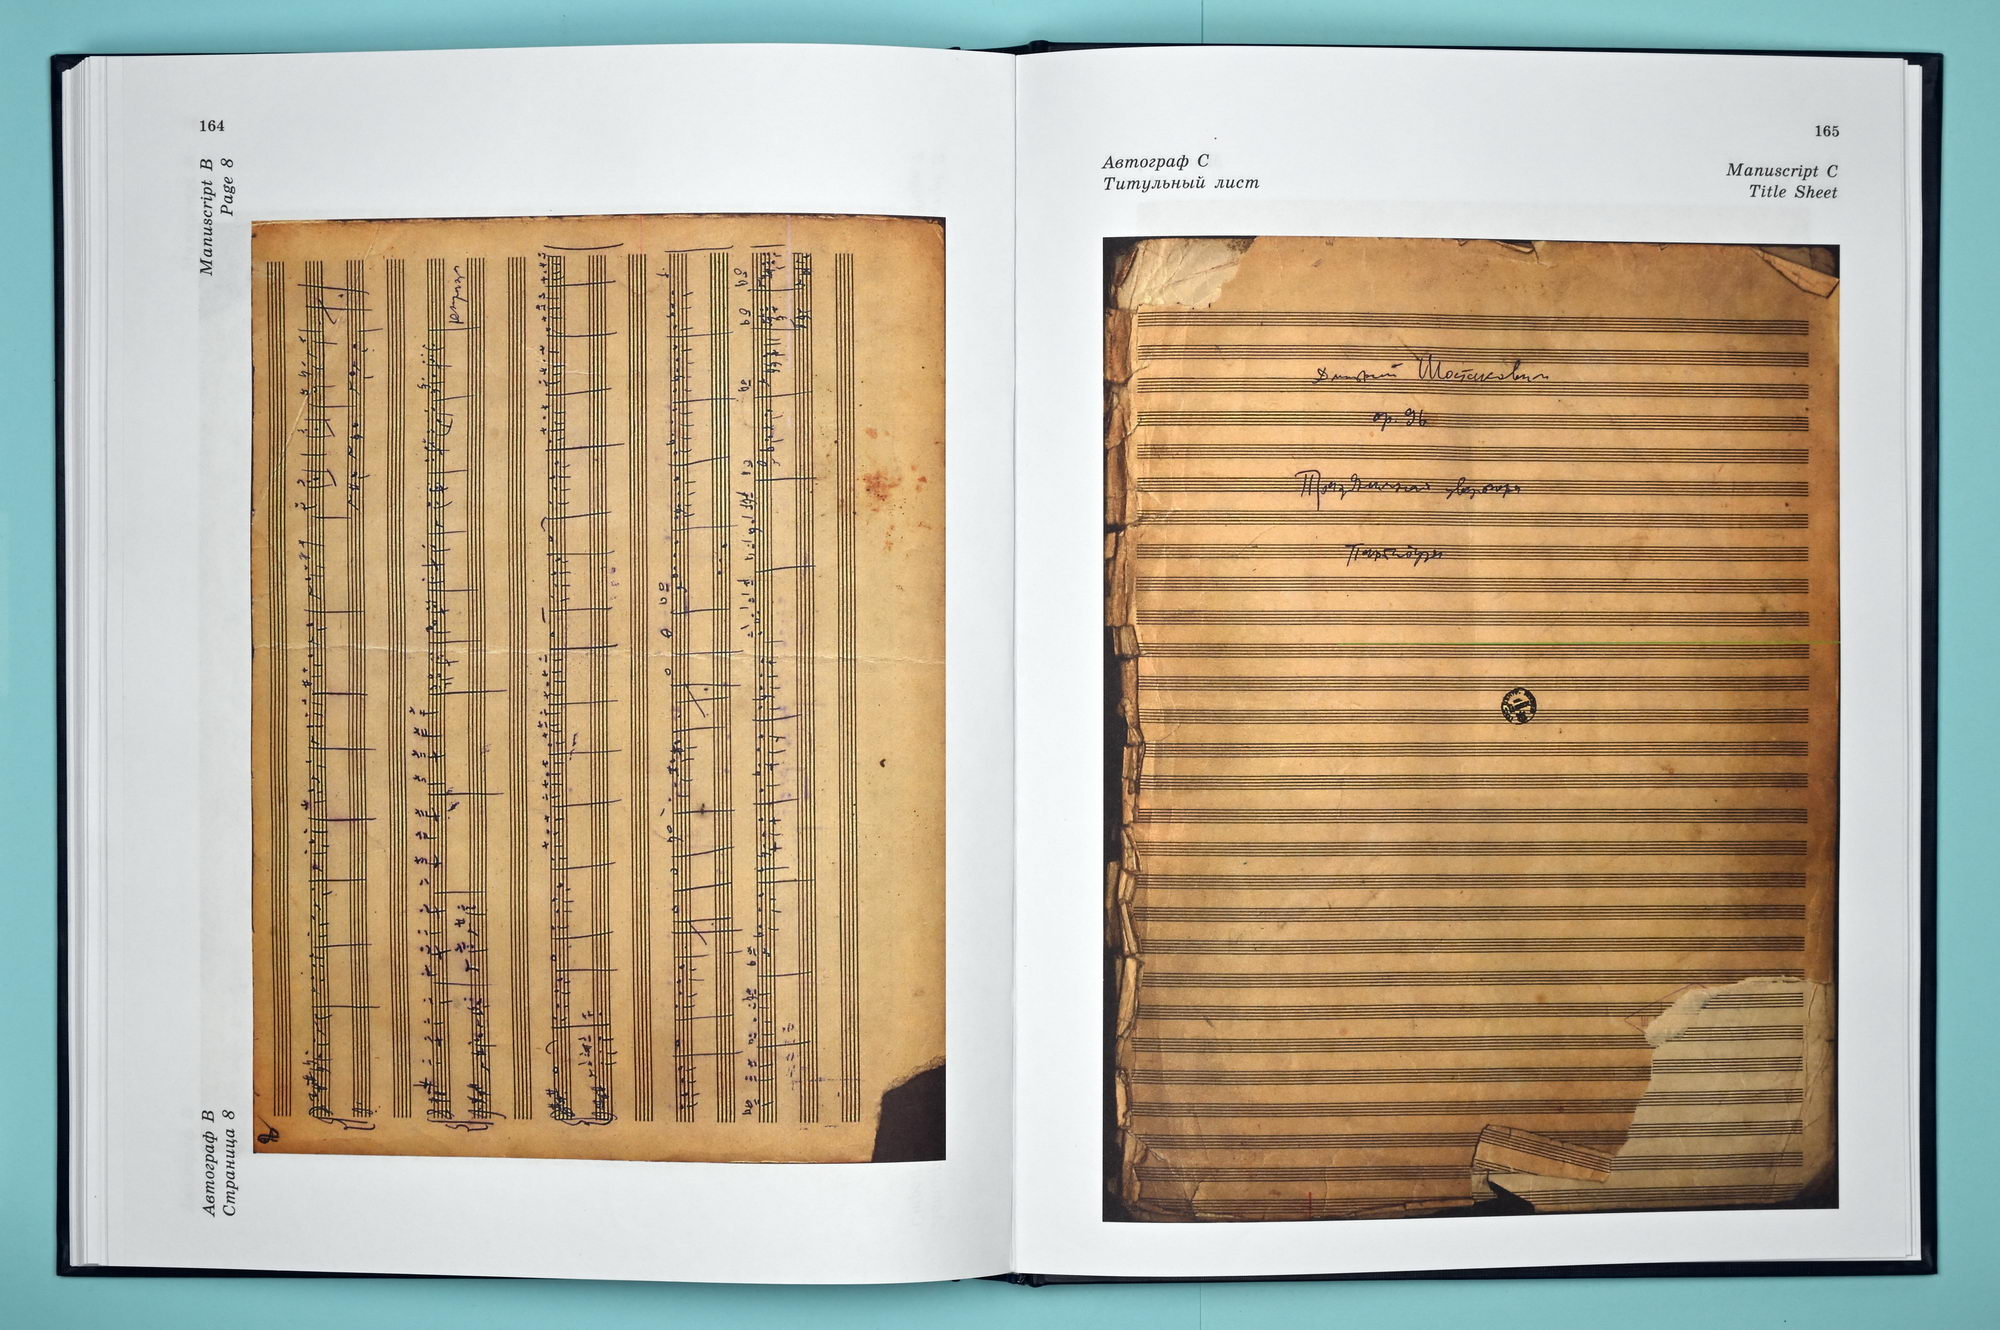 164
Manuscript B
Page 8
Автограф В
Страница 8
165
Автограф С
Титульный лист
Manuscript C
Title Sheet
Дмитрий Шостакович
ор. 96
Праздничная увертюра
Партитура